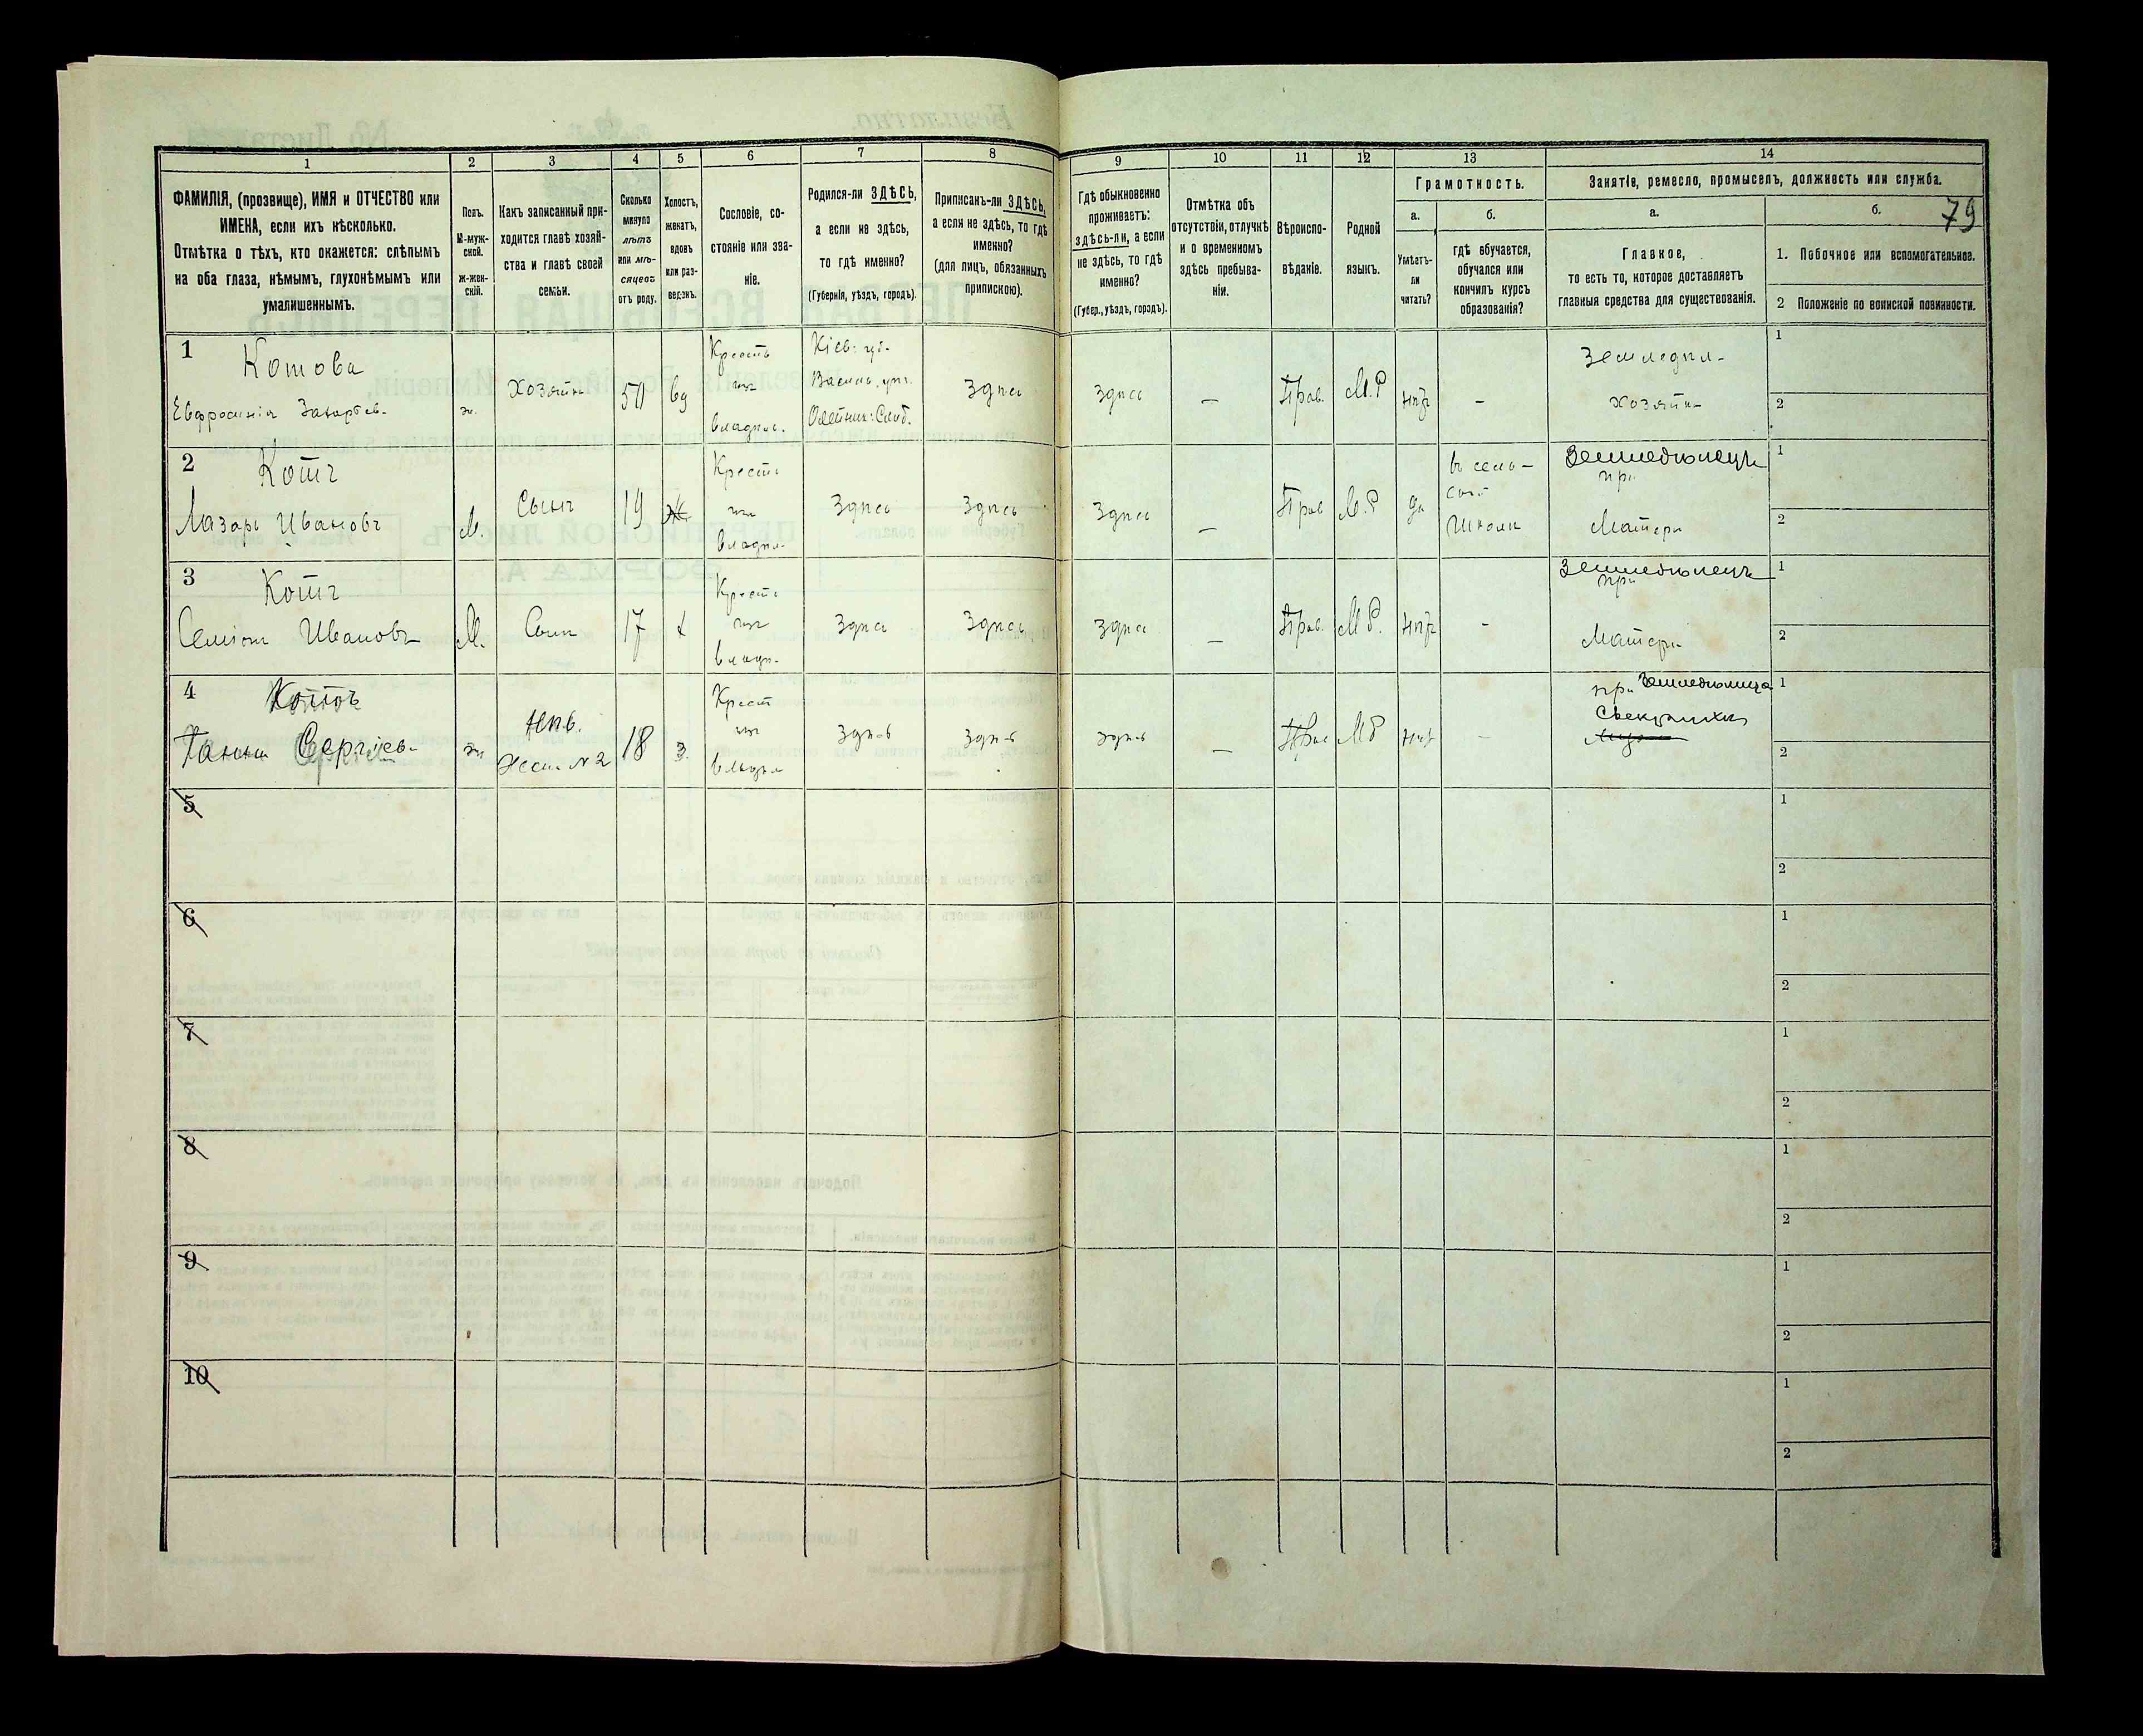 1
2
3
4
5
6
7
8
9
10
11
12
13
14
ФАМИЛІЯ, (прозвище), ИМЯ и ОТЧЕСТВО или
ИМЕНА, если ихъ нѣсколько.
Отмѣтка о тѣхъ, кто окажется: слѣпымъ
на оба глаза, нѣмымъ, глухонѣмымъ или
умалишеннымъ.
Полъ.
М-муж-
ской.
ж-жен-
скій.
Какъ записанный при-
ходится главѣ хозяй-
ства и главѣ своей
семьи.
Сколько
минуло
лѣтъ
или мѣ-
сяцевъ
отъ роду.
Холостъ,
женатъ,
вдовъ
или раз-
веденъ.
Сословіе, со-
стояніе или зва-
ніе.
Родился-ли ЗДѢСЬ,
а если не здѣсь,
то гдѣ именно?
(Губернія, уѣздъ, городъ).
Приписанъ-ли ЗДѢСЬ,
а если не здѣсь, то гдѣ
именно?
(для лицъ, обязанныхъ
припискою).
Гдѣ обыкновенно
проживаетъ:
здѣсь-ли, а если
не здѣсь, то гдѣ
именно?
(Губер., уѣздъ, городъ).
Отмѣтка объ
отсутствіи, отлучкѣ
и о временномъ
здѣсь пребыва-
ніи.
Вѣроиспо-
вѣданіе.
Родной
языкъ.
Грамотность.
а.
Умѣетъ-
ли
читать?
б.
гдѣ обучается,
обучался или
кончилъ курсъ
образованія?
Занятіе, ремесло, промыселъ, должность или служба.
а.
Главное,
то есть то, которое доставляетъ
главныя средства для существованія.
б.
79
1. Побочное или вспомогательное.
2 Положеніе по воинской повинности.
1
Котова
Евфросинія Захаріев-
ж.
Хозяйка
50
вд
Крестъ
изъ
владѣл.
Кіев: губ.
Васильк. уѣз.
Здѣсь
Здѣсь
—
Прав.
М.Р
нѣтъ
-
Земледѣл-
хозяйка
1
2
2
Котъ
Лазарь Ивановъ
М.
Сынъ
19
Ж
Крестъ
изъ
владѣл.
Здѣсь
Здѣсь
Здѣсь
—
Прав
М.Р
да
въ сель-
ской
Школѣ
Земледѣлецъ
при
Матери
1
2
3
Котъ
Ивановъ
М.
Сынъ
17
х
Крестъ
изъ
владѣ.
Здѣсь
Здѣсь
Здѣсь
—
Прав.
М Р.
нѣтъ
-
Земледѣлецъ
при
Матери
1
2
4
Сергіев-
ж
Нев.
Жена №2
18
з.
Крест
изъ
владѣл
Здѣсь
Здѣсь
Здѣсь
—
Прав
М Р
нѣтъ
-
при Земледѣлица
Свекрухи
1
2
5
1
2
6
1
2
7
1
2
8
1
2
9
1
2
10
1
2